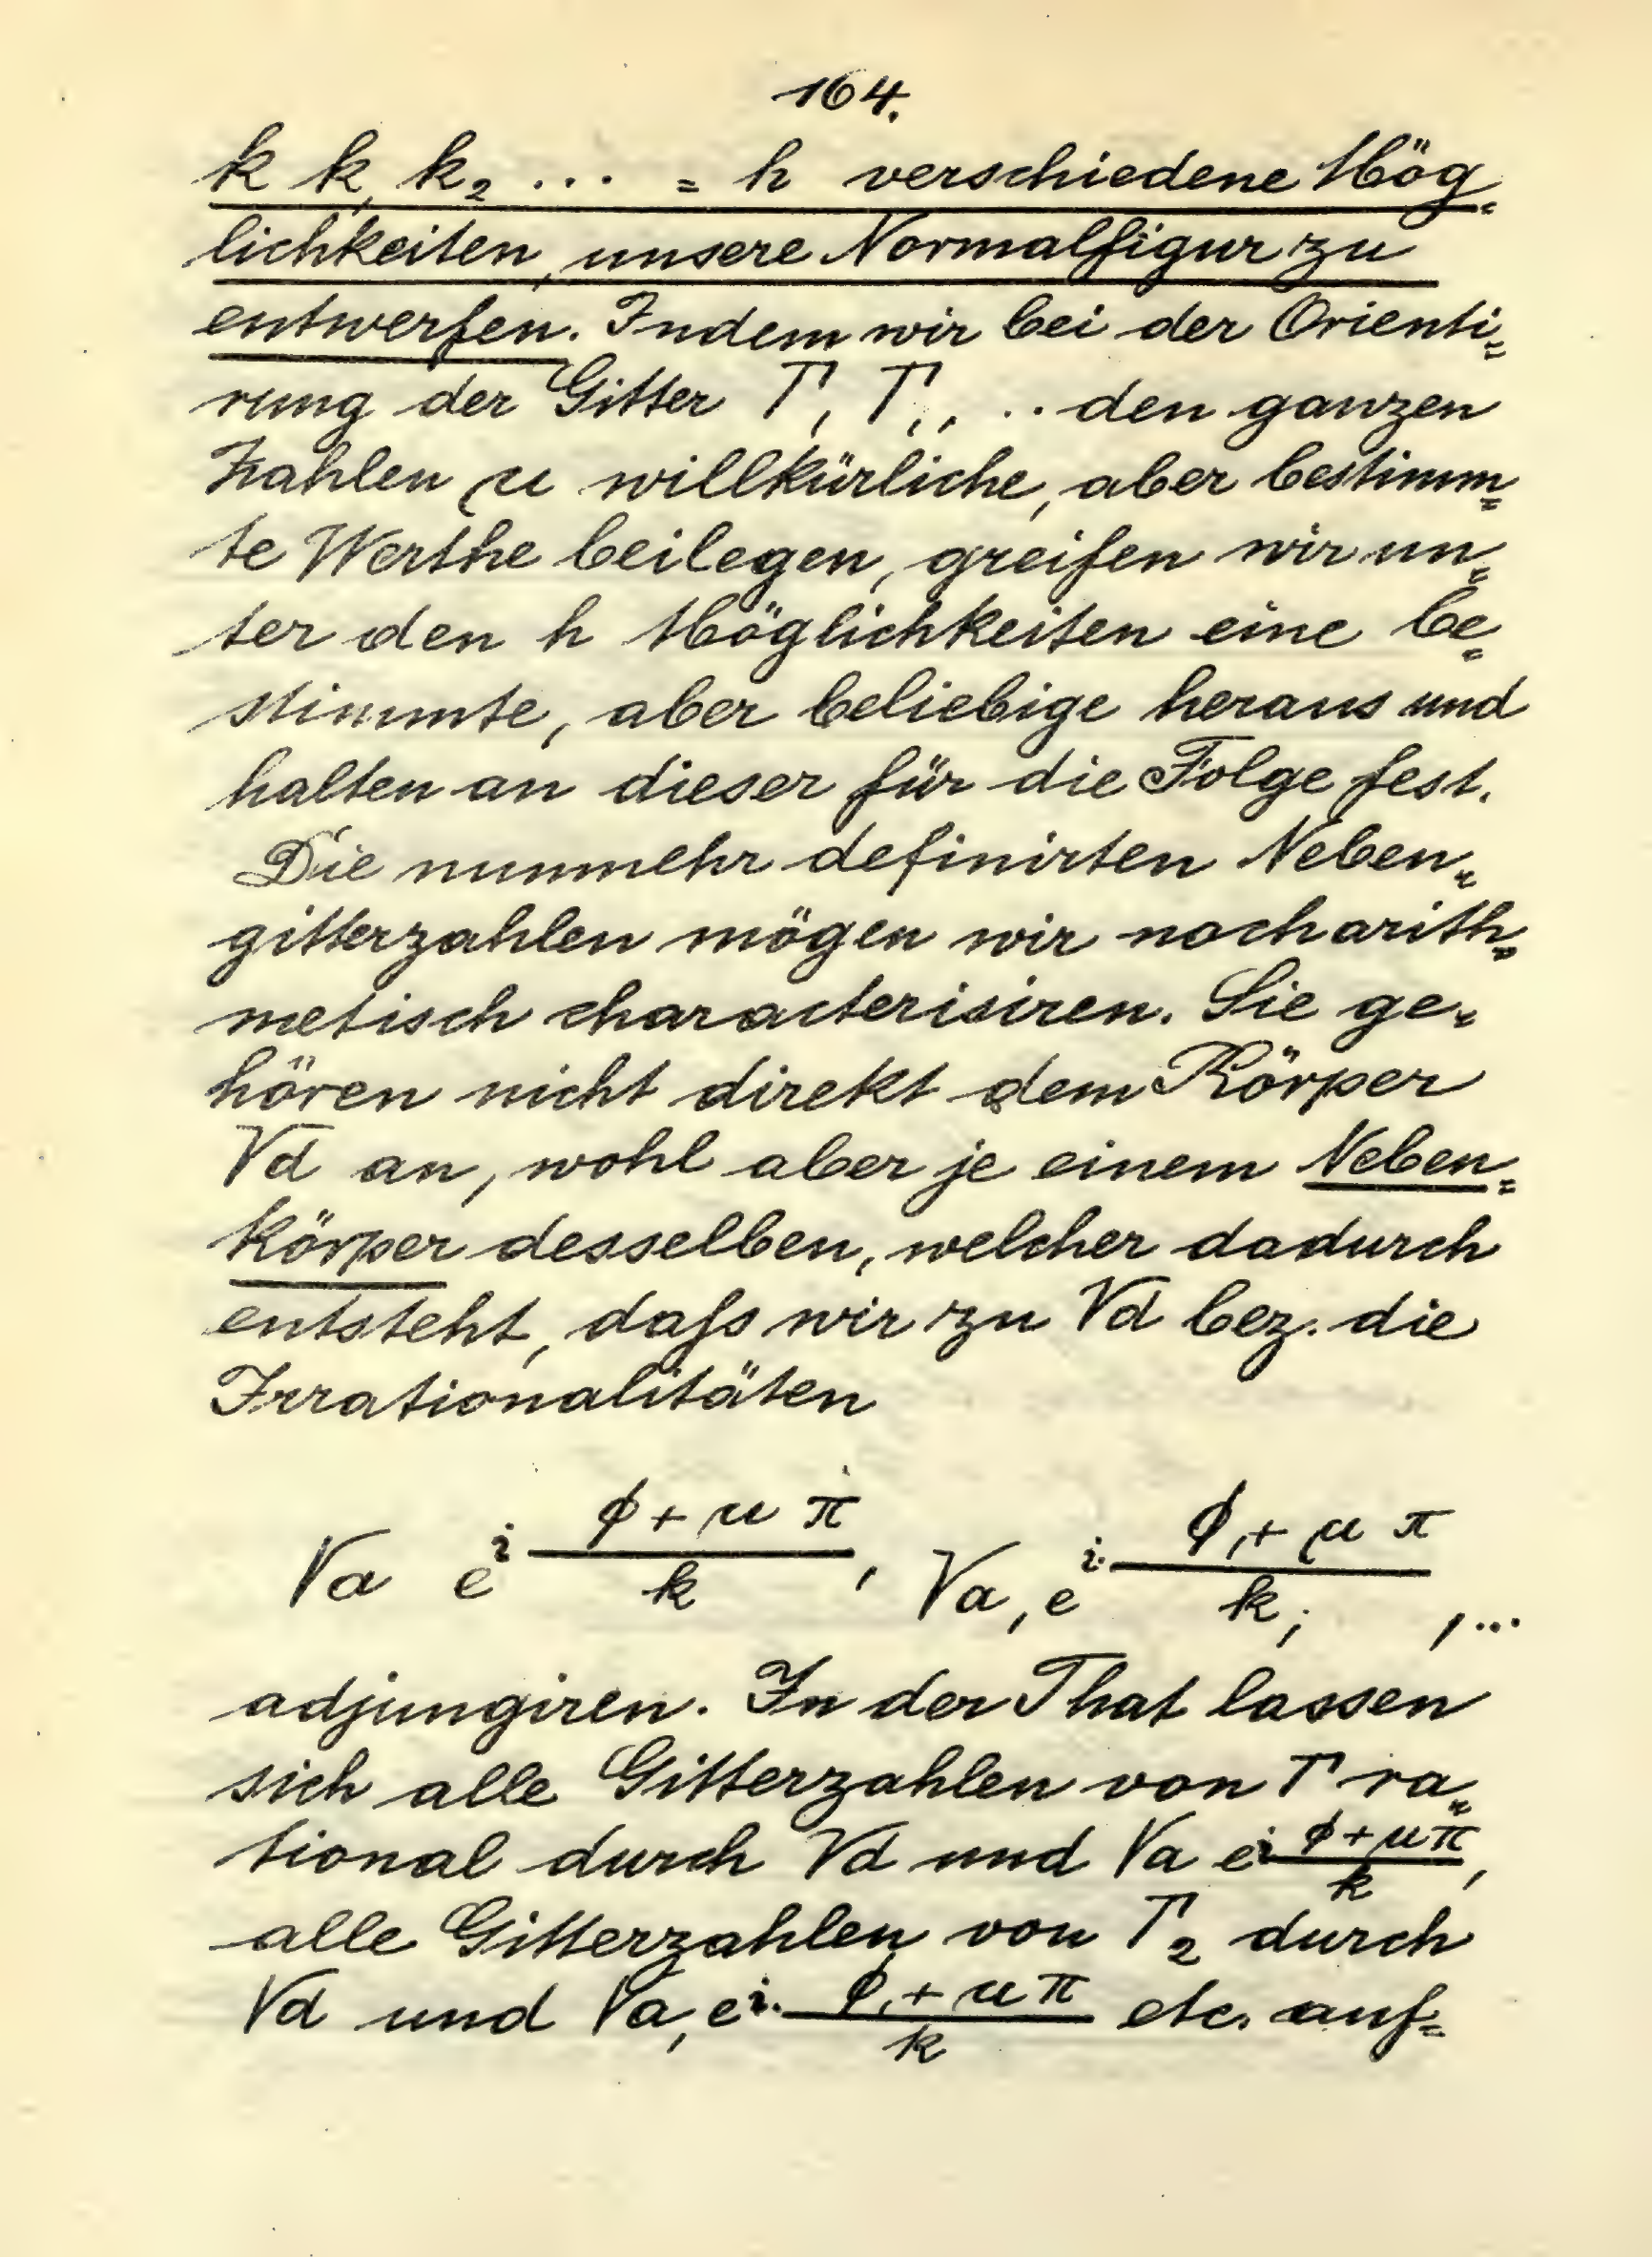 164.
k k, k₂ ... = h verschiedene Mög=
lichkeiten, unsere Normalfigur zu
entwerfen. Indem wir bei der Orienti=
rung der Gitter Γ, Γ,, .. den ganzen
Zahlen μ willkürliche, aber bestimm=
te Werthe beilegen, greifen wir un=
ter den h Möglichkeiten eine be=
stimmte, aber beliebige heraus und
halten an dieser für die Folge fest.
Die nunmehr definirten Neben=
gitterzahlen mögen wir noch arith=
metisch characterisiren. Sie ge=
hören nicht direkt dem Körper
√d an, wohl aber je einem Neben=
körper desselben, welcher dadurch
entsteht, daſs wir zu √d bez. die
Irrationalitäten
√a e^{i (ϕ + μ π)/k}, √a, e^{i (ϕ, + μ π)/k,}, ...
adjungiren. In der That lassen
sich alle Gitterzahlen von Γ ra=
tional durch √d und √a e^{i (ϕ + μ π)/k},
alle Gitterzahlen von Γ₂ durch
√d und √a, e^{i (ϕ, + μ π)/k} etc. auf=